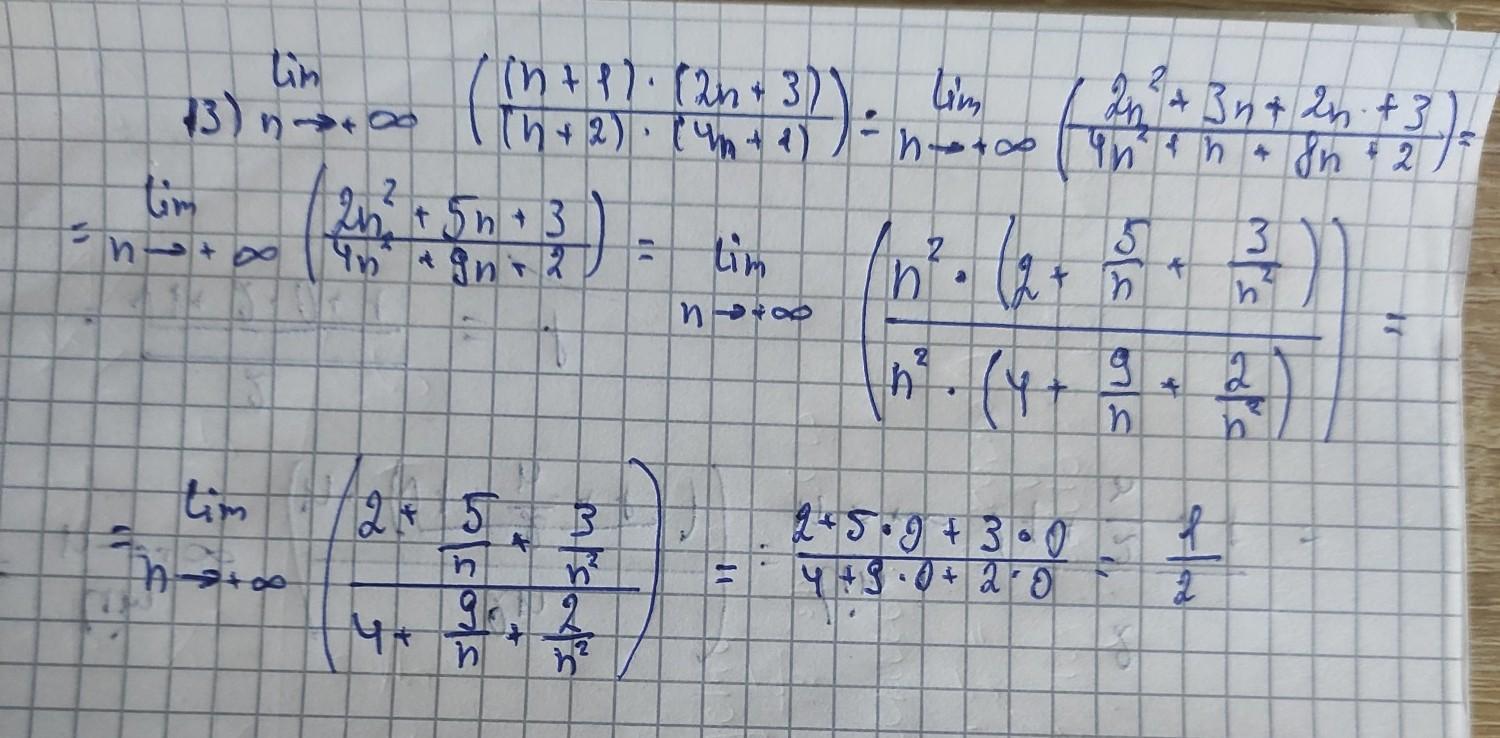 13) lim n→+∞ ((n+1)·(2n+3) / (n+2)·(4n+1)) = lim n→+∞ (2n²+3n+2n+3 / 4n²+n+8n+2) =
= lim n→+∞ (2n²+5n+3 / 4n²+9n+2) = lim n→+∞ (n²·(2+5/n+3/n²) / n²·(4+9/n+2/n²)) =
= lim n→+∞ (2+5/n+3/n² / 4+9/n+2/n²) = 2+5·0+3·0 / 4+9·0+2·0 = 1/2